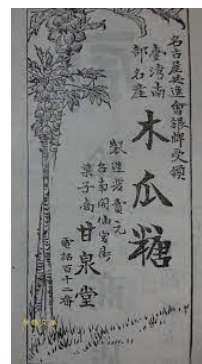 名古屋共進會銀牌受領
臺灣南
部名產
木瓜糖
製造發賣元
台南開仙宮街
菓子商 甘泉堂
電話百十二番